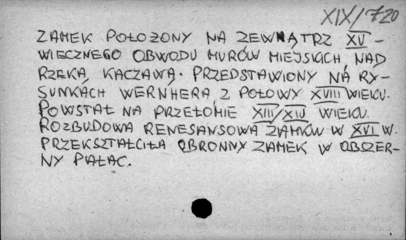 XIX/720
ZAMEK POŁOŻONY NA ZEWNĄTRZ XV-
WIECZNEGO OBWODU MURÓW MIEJSKICH, NAD
RZEKĄ KACZAWĄ. PRZEDSTAWIONY NA RY-
SUNKACH WERNHERA Z POŁOWY XVIII WIEKU.
POWSTAŁ NA PRZEŁOMIE XIII/XIV WIEKU.
ROZBUDOWA RENESANSOWA ZAMKU W XVI W.
PRZEKSZTAŁCIŁA OBRONNY ZAMEK W OBSZER-
NY PAŁAC.